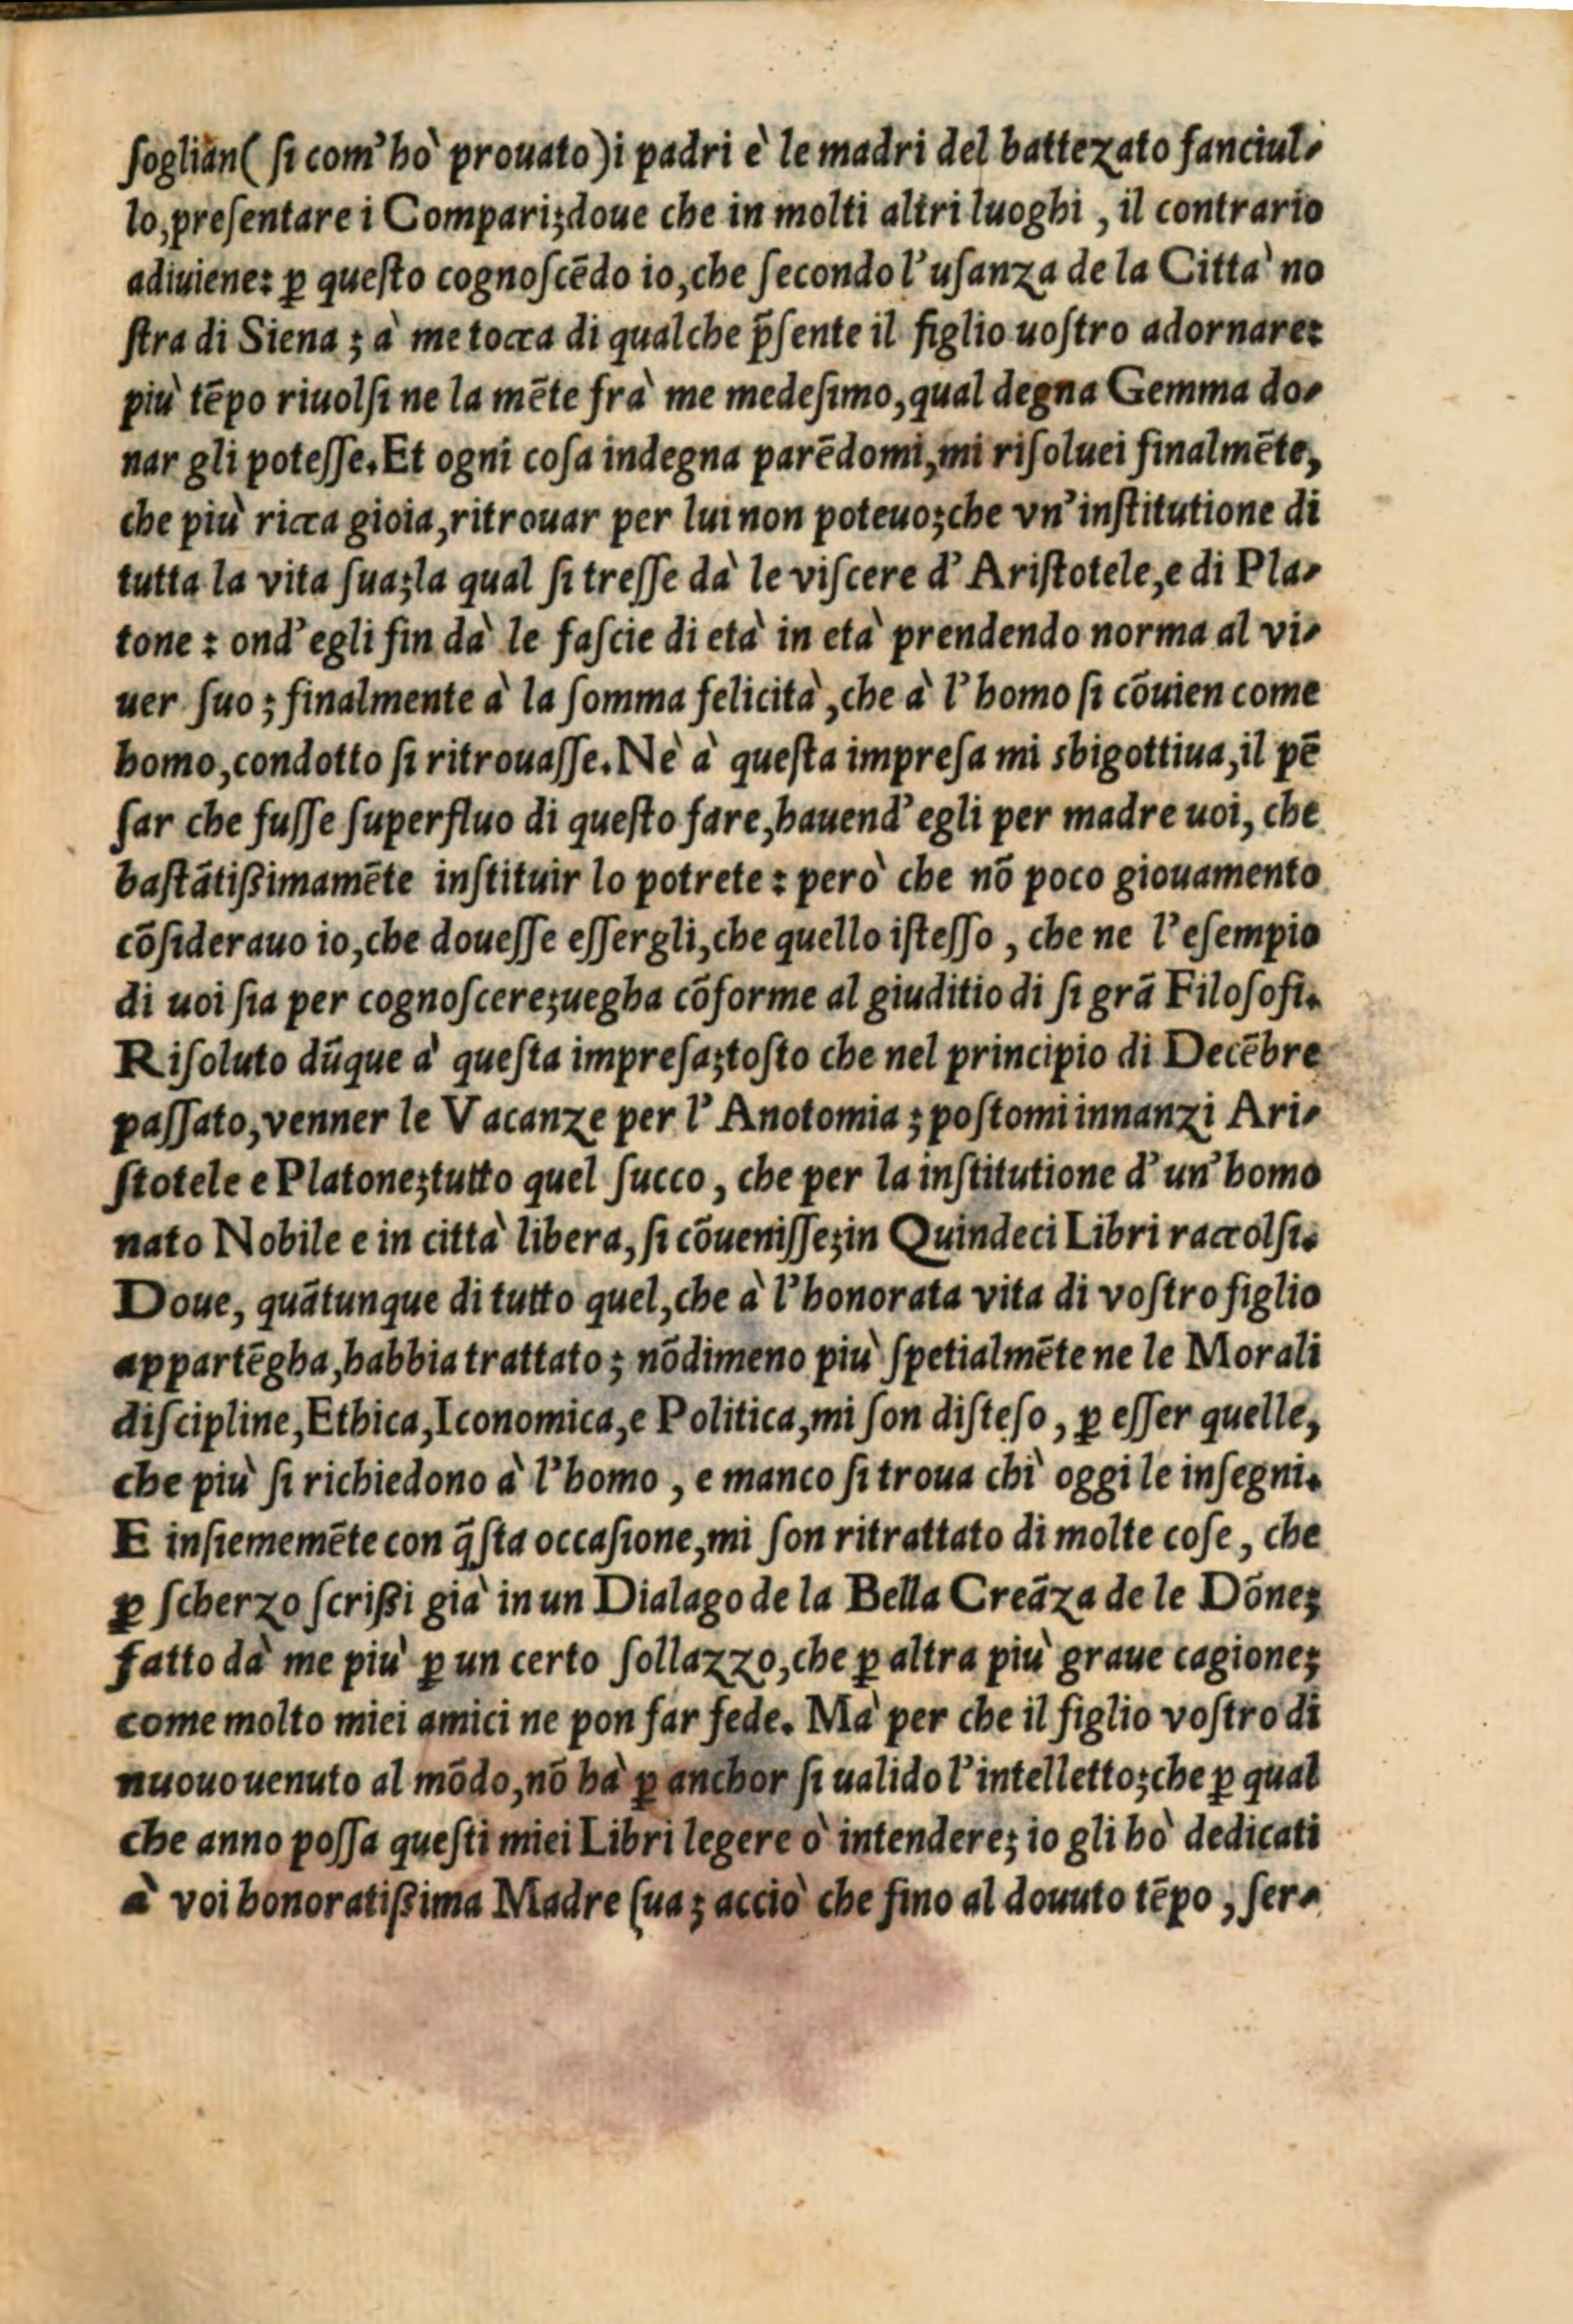 ſoglian( ſi com'hò prouato)i padri è le madri del battezato fanciul-
lo,preſentare i Compari;doue che in molti altri luoghi , il contrario
adiuiene: ꝑ queſto cognoſcẽdo io,che ſecondo l'uſanza de la Città no
ſtra di Siena ; à me tocca di qualche p̃ſente il figlio uoſtro adornare:
più tẽpo riuolſi ne la mẽte frà me medeſimo,qual degna Gemma do-
nar gli poteſſe.Et ogni coſa indegna parẽdomi,mi riſoluei finalmẽte,
che più ricca gioia,ritrouar per lui non poteuo;che vn'inſtitutione di
tutta la vita ſua;la qual ſi treſſe dà le viſcere d'Ariſtotele,e di Pla-
tone : ond'egli fin dà le faſcie di età in età prendendo norma al vi-
uer ſuo ; finalmente à la ſomma felicità ,che à l'homo ſi cõuien come
homo,condotto ſi ritrouaſſe.Nè à queſta impreſa mi sbigottiua,il pẽ
ſar che fuſſe ſuperfluo di queſto fare,hauend'egli per madre uoi, che
baſtãtißimamẽte inſtituir lo potrete : però che nõ poco giouamento
cõſiderauo io,che doueſſe eſſergli,che quello iſteſſo , che ne l'eſempio
di uoi ſia per cognoſcere;uegha cõforme al giuditio di ſi grã Filoſofi.
Riſoluto dũque à queſta impreſa;toſto che nel principio di Decẽbre
paſſato,venner le Vacanze per l'Anotomia ; poſtomi innanzi Ari-
ſtotele e Platone;tutto quel ſucco , che per la inſtitutione d'un'homo
nato Nobile e in città libera, ſi cõueniſſe;in Quindeci Libri raccolſi.
Doue, quãtunque di tutto quel,che à l'honorata vita di voſtro figlio
appartẽgha,habbia trattato ; nõdimeno più ſpetialmẽte ne le Morali
diſcipline,Ethica,Iconomica,e Politica,mi ſon diſteſo , ꝑ eſſer quelle,
che più ſi richiedono à l'homo , e manco ſi troua chì oggi le inſegni.
E inſiememẽte con q̃ſta occaſione,mi ſon ritrattato di molte coſe , che
ꝑ ſcherzo ſcrißi già in un Dialago de la Bella Creãza de le Dõne;
fatto dà me più ꝑ un certo ſollazzo,che ꝑ altra più graue cagione;
come molto miei amici ne pon far fede. Mà per che il figlio voſtro di
nuouo uenuto al mõdo,nõ hà ꝑ anchor ſi ualido l'intelletto;che ꝑ qual
che anno poſſa queſti miei Libri legere ò intendere; io gli hò dedicati
à voi honoratißima Madre ſua ; acciò che fino al douuto tẽpo , ſer-